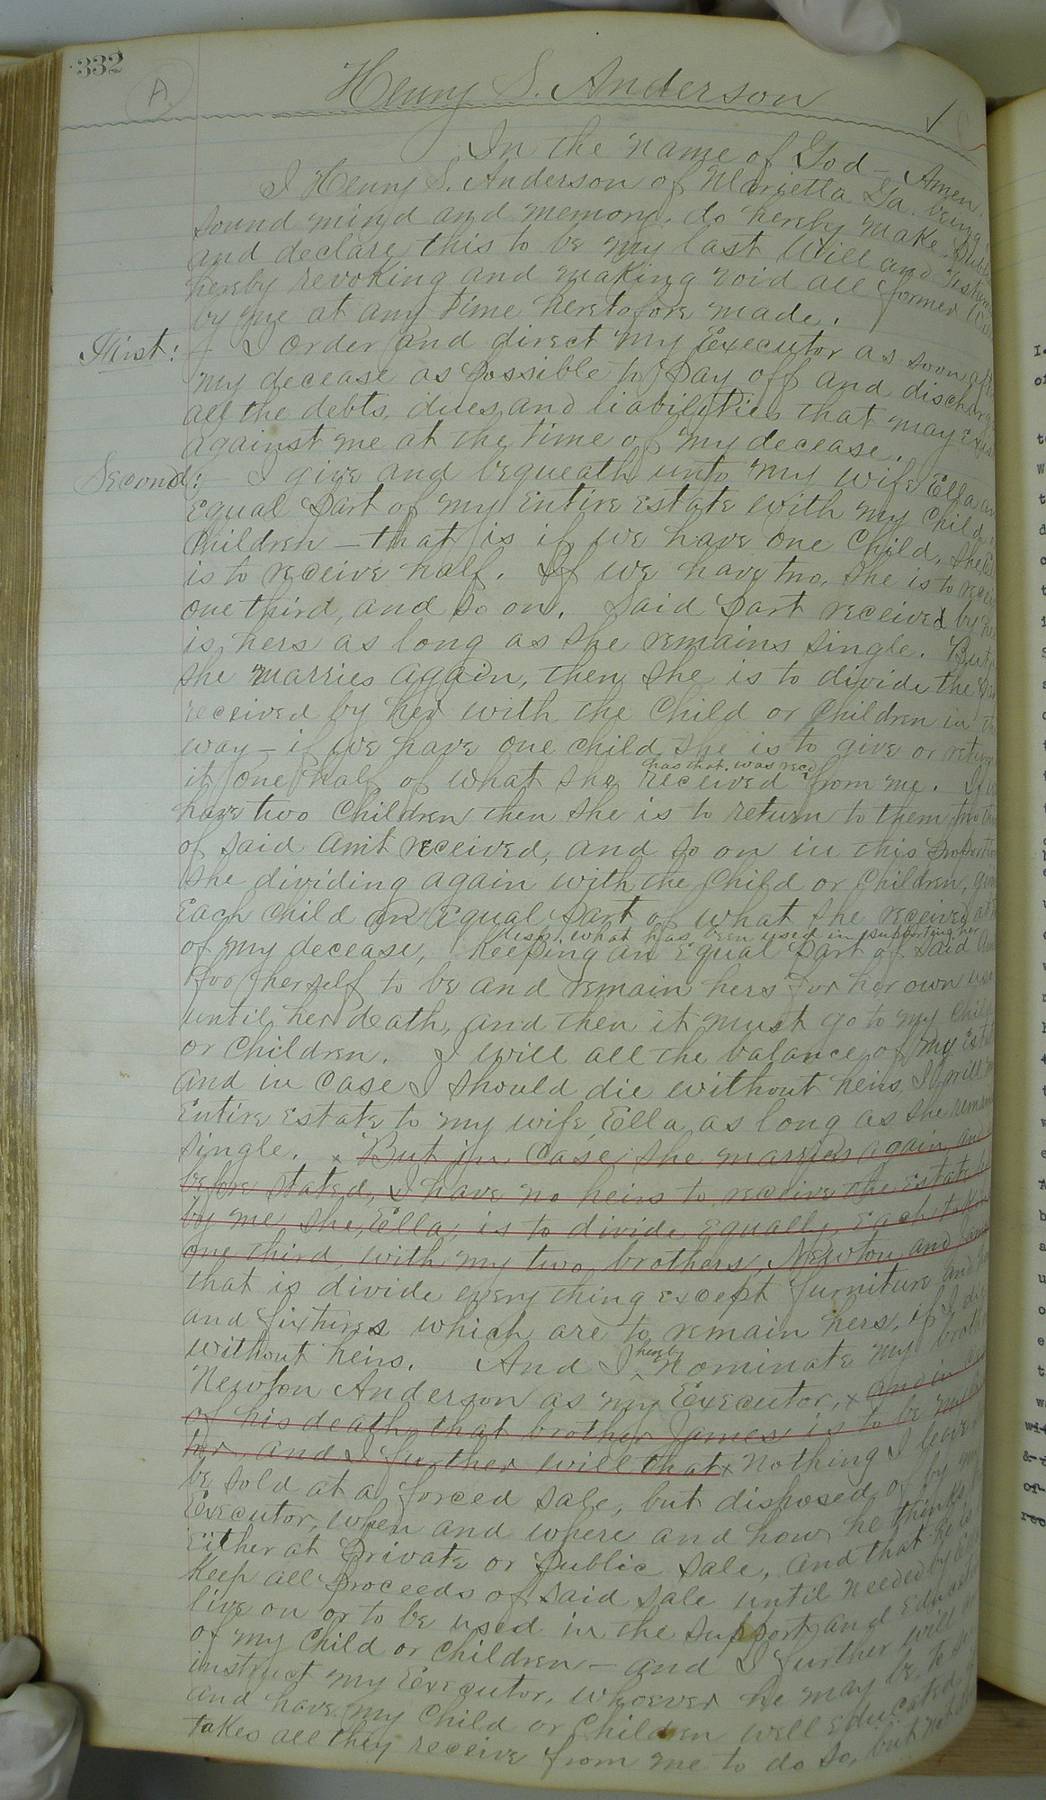 332
A.
Henry S. Anderson
In the name of God - Amen.
I Henry S. Anderson of Marietta Ga. being
sound mind and memory, do hereby make
and declare this to be my last Will and
hereby revoking and making void all former
by me at any time heretofore made.
First: - I order and direct my Executor as soon
my decease as possible to pay off and
all the debts, dues, and liabilities that may
against me at the time of my decease.
Second: - I give and bequeath unto my wife Ella
equal part of my entire estate with my Child
Children - that is if we have one Child, she
is to receive half. If we have two, she is to
one third, and so on. Said part received by
is hers as long as she remains single. But
she marries again, then she is to divide the
received by her with the child or Children in
way - if we have one child she is to give or
has that was recd
it one half of what she received from me. If
have two Children then she is to return to them
of said am't received, and so on in this
She dividing again with the Child or Children,
each child an equal part of what she received
less what has been used in supporting her
of my decease, Keeping an equal part of said
herself to be and remain hers for her own use
until her death, and then it must go to my
or Children. I will all the balance of my
and in case I should die without heirs, I will
entire estate to my wife, Ella, as long as she
single. x But in Case she marries again, and
before stated, I have no heirs to receive the estate
by me, she, Ella, is to divide equally, each
one third, with my two brothers, Newton and
that is divide every thing except furniture and
and fixtures which are to remain hers, if I
hereby
without heirs. And I ^ nominate my
Newton Anderson as my Executor, x and in
of his death, that brother James is to be my
and I further will that x nothing I leave
be sold at a forced sale, but disposed of by my
Executor, when and where and how he thinks
either at private or public sale, and that he is
Keep all proceeds of said sale until needed by
live on or to be used in the support and
of my Child or Children - and I further will
instruct my Executor, whoever he may be, to
and have my Child or Children well educated,
takes all they receive from me to do so, but